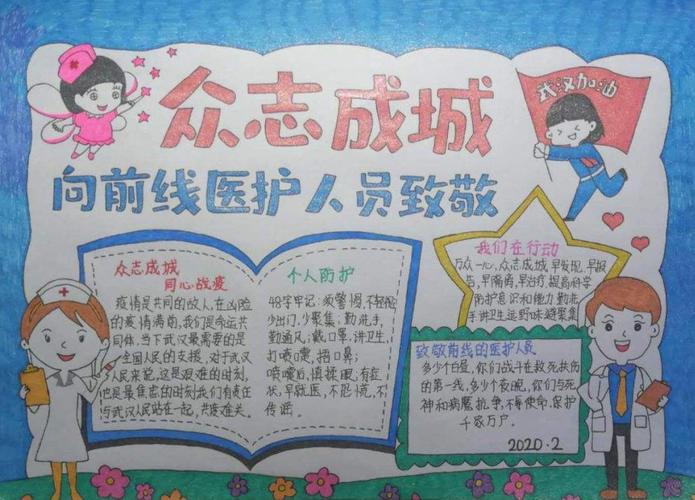 武汉加油
众志成城
向前线医护人员致敬
众志成城
同心战疫
疫情是共同的敌人,在凶险
的疫情面前,我们是命运共
同体,当下武汉最需要的是
全国人民的支援,对于武汉
人民来说,这是艰难的时刻,
也是最焦急的时刻我们有责任
与武汉人民站在一起,共度难关。
个人防护
48字牢记:须警惕,不轻视
少出门,少聚集;勤洗手,
勤通风;戴口罩,讲卫生;
打喷嚏,捂口鼻;
喷嚏后,慎揉眼,有症
状,早就医,不恐慌,不
传谣。
我们在行动
万众一心,众志成城,早发现,早报
告,早隔离,早治疗,提高科学
防护意识和能力,勤洗
手讲卫生远野味避聚集
致敬前线的医护人员
多少个白昼,你们战斗在救死扶伤
的第一线,多少个夜晚,你们与死
神和病魔抗争,不辱使命,保护
千家万户。
2020.2